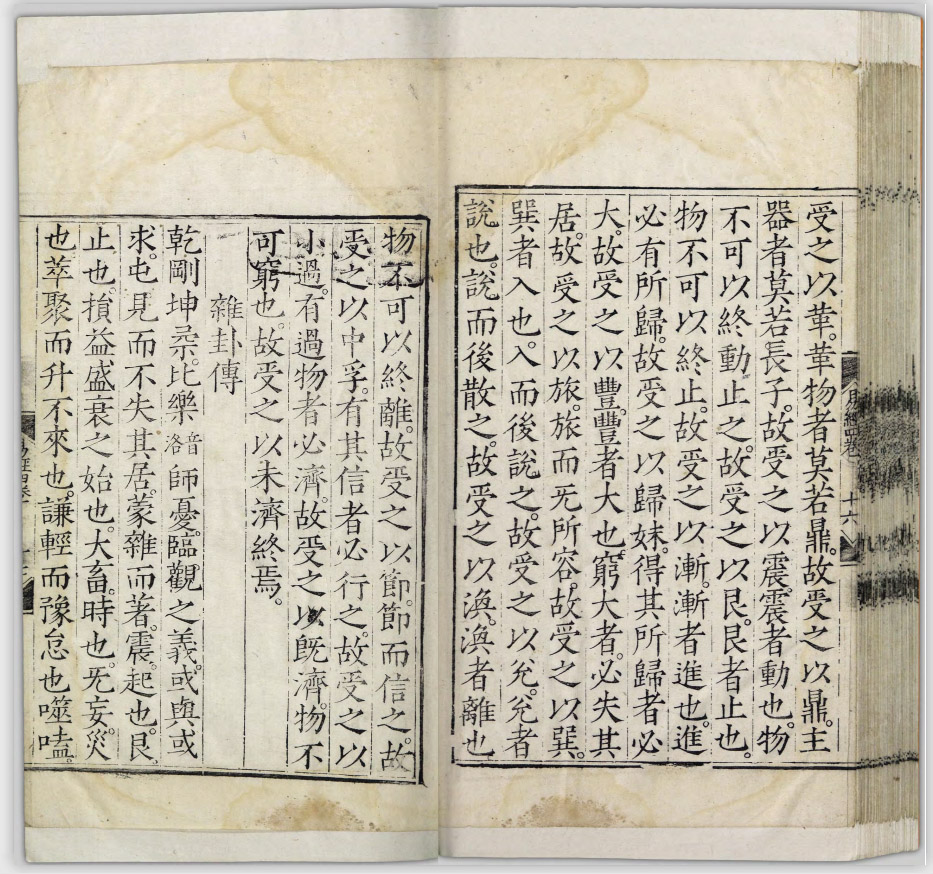 受之以革。革物者莫若鼎。故受之以鼎。主
器者莫若長子。故受之以震。震者動也。物
不可以終動止之。故受之以艮。艮者止也。
物不可以終止。故受之以漸。漸者進也。進
必有所歸。故受之以歸妹。得其所歸者必
大。故受之以豐。豐者大也。窮大者。必失其
居。故受之以旅。旅而无所容。故受之以巽。
巽者入也。入而後說之。故受之以兌。兌者
說也。說而後散之。故受之以渙。渙者離也
十六
物不可以終離。故受之以節。節而信之。故
受之以中孚。有其信者必行之。故受之以
小過。有過物者必濟。故受之以既濟。物不
可窮也。故受之以未濟終焉。
雜卦傳
乾剛坤柔。比樂音洛師憂。臨觀之義。或與或
求。屯見而不失其居。蒙雜而著。震。起也。艮。
止也。損益盛衰之始也。大畜。時也。无妄。災
也萃聚而升不來也。謙輕而豫怠也噬嗑。